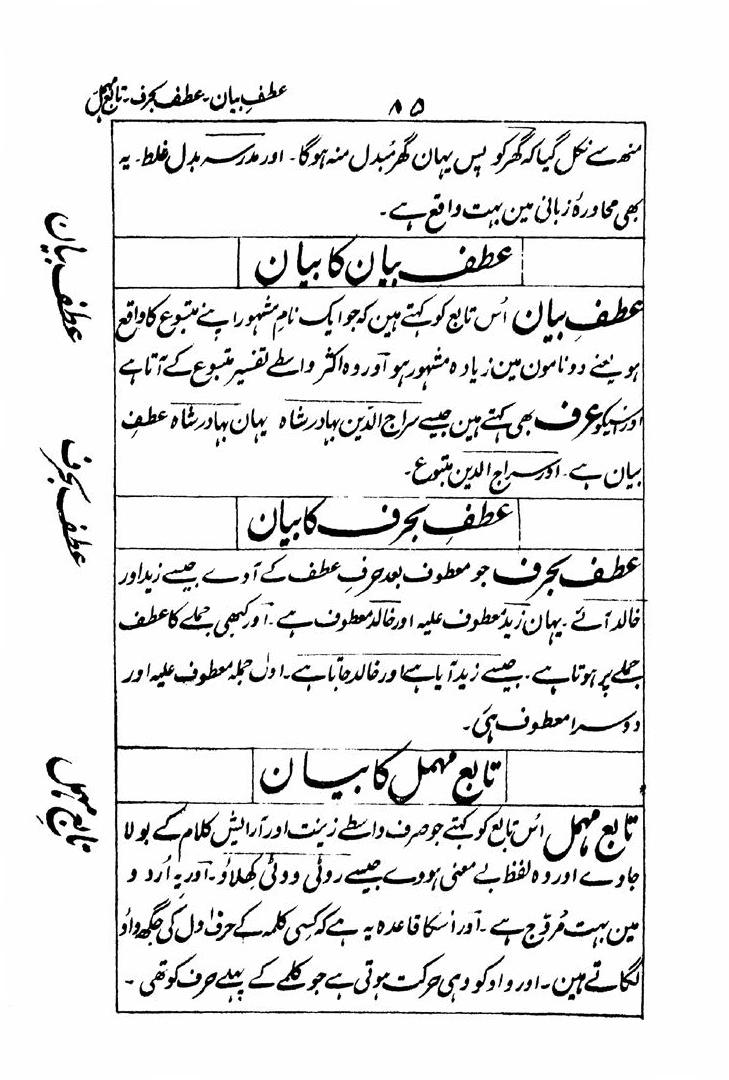 ۸۵
عطفِ بیان۔ عطف بحرف۔ تابع مہمل
منھ سے نکل گیا کہ گھر کو پس یہان گھر مُبدل منہ ہوگا۔ اور مدرسہ بدل غلط۔ یہ
بھی محاورۂ زبانی مین بہت واقع ہے۔
عطف بیان کا بیان
عطفِ بیان
عطفِ بیان اُس تابع کو کہتے ہین کہ جو ایک نامِ مشہور اپنے متبوع کا واقع
ہو یعنے دو نامون مین زیادہ مشہور ہو اور وہ اکثر واسطے تفسیر متبوع کے آتا ہے
اور اُسیکو عرف بھی کہتے ہین جیسے سراج الدّین بہادر شاہ یہان بہادر شاہ عطفِ
بیان ہے۔ اور سراج الدین متبوع۔
عطفِ بحرف کا بیان
عطف بحرف
عطف بحرف جو معطوف بعد حرفِ عطف کے آوے جیسے زید اور
خالد آئے۔ یہان زید معطوف علیہ اور خالد معطوف ہے۔ اور کبھی جملے کا عطف
جملے پر ہوتا ہے۔ جیسے زید آیا ہے اور خالد جاتا ہے۔ اول جملہ معطوف علیہ اور
دوسرا معطوف ہی۔
تابع مہمل کا بیان
تابع مہمل
تابع مہمل اُس تابع کو کہتے جو صرف واسطے زینت اور آرایش کلام کے بولا
جاوے اور وہ لفظ بے معنی ہووے جیسے روٹی ووٹی کھلاؤ۔ اور یہ اُردو
مین بہت مُروّج ہے۔ اور اسکا قاعدہ یہ ہے کہ کسی کلمہ کے حرف اول کی جگھ واؤ
لگاتے ہین۔ اور واو کو وہی حرکت ہوتی ہے جو کلمے کے پہلے حرف کو تھی۔